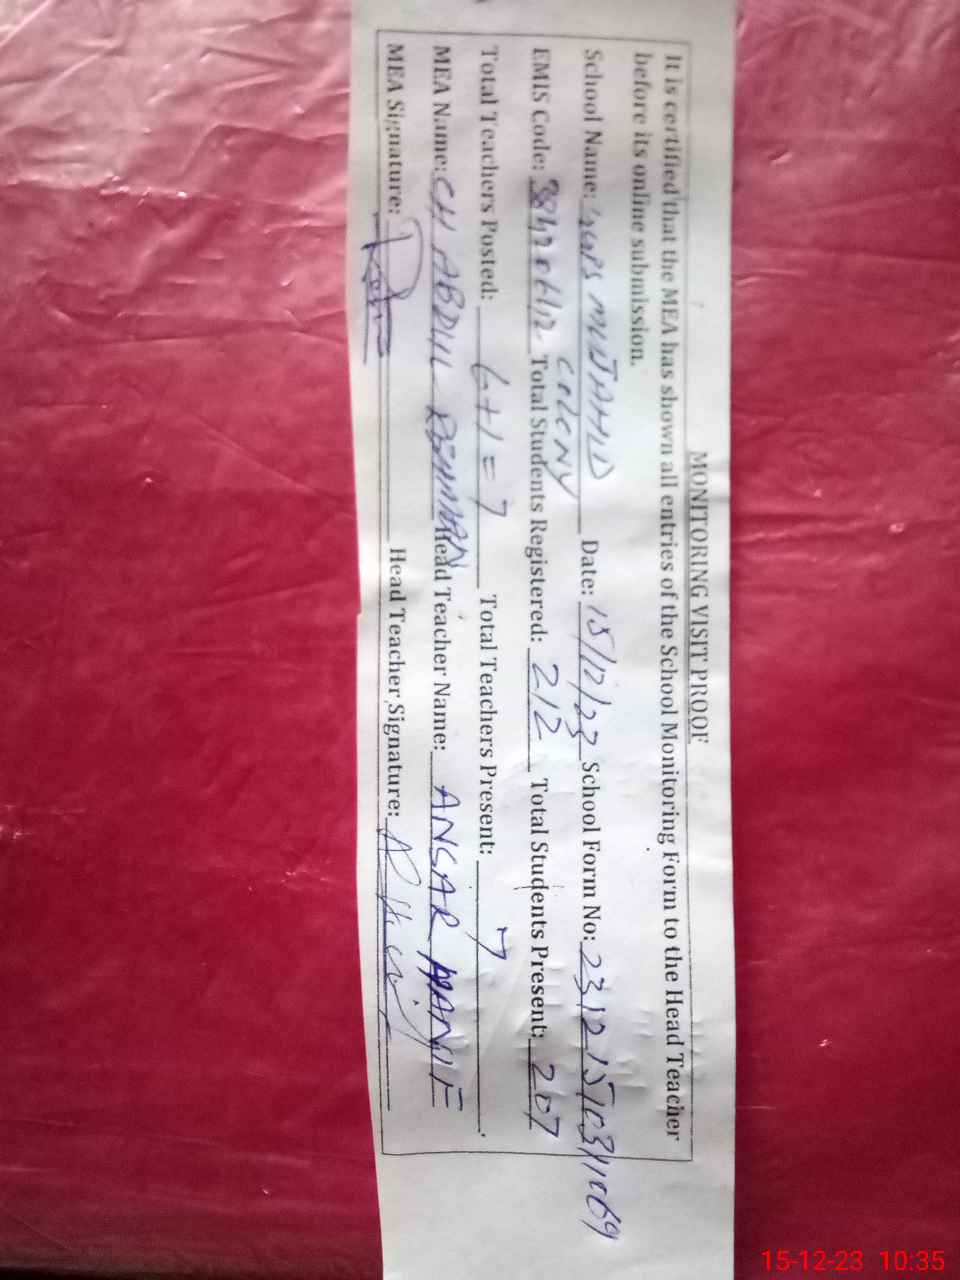 MONITORING VISIT PROOF
It is certified that the MEA has shown all entries of the School Monitoring Form to the Head Teacher
before its online submission.
School Name: MUJAHID COLONY Date: 15/12/23 School Form No:
EMIS Code: Total Students Registered: 212 Total Students Present: 207
Total Teachers Posted: 6+1=7 Total Teachers Present: 7
MEA Name: CH ABDUL REHMAN Head Teacher Name: ANSAR
MEA Signature: Head Teacher Signature:
15-12-23 10:35